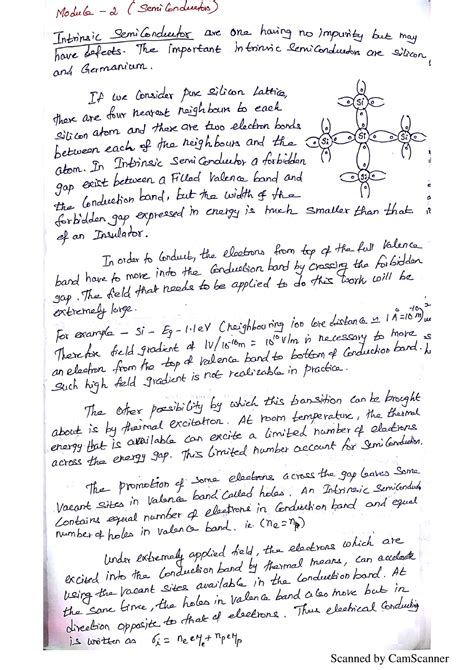 Module - 2 ( Semi Conductors)
Intrinsic Semi Conductor are one having no impurity but may
have defects. The important intrinsic Semi Conductors are silicon
and Germanium.
If we Consider pure silicon Lattice,
there are four nearest neighbours to each
silicon atom and there are two electron bonds
between each of the neighbours and the
atom. In Intrinsic Semi Conductor a forbidden
gap exist between a Filled Valence band and
the Conduction band, but the width of the
forbidden gap expressed in energy is much smaller than that
of an Insulator.
Si
Si Si Si
Si
In order to Conduct, the electrons from top of the full Valence
band have to move into the Conduction band by crossing the forbidden
gap. The field that needs to be applied to do this work will be
extremely large.
For example - Si - Eg - 1.1eV (neighbouring ion core distance ≃ 1 A° = 10⁻¹⁰m)
Therefore field gradient of 1V/10⁻¹⁰m = 10¹⁰V/m is necessary to move
an electron from the top of Valence band to bottom of Conduction band.
Such high field gradient is not realizable in practice.
The other possibility by which this transition can be brought
about is by thermal excitation. At room temperature, the thermal
energy that is available can excite a limited number of electrons
across the energy gap. This limited number account for Semi Conductor.
The promotion of some electrons across the gap leaves some
vacant sites in Valence band called holes. An Intrinsic Semi Conductor
Contains equal number of electrons in Conduction band and equal
number of holes in valence band. ie (ne = np)
Under extremely applied field, the electrons which are
excited into the Conduction band by thermal means, can accelerate
using the vacant sites available in the Conduction band. At
the same time, the holes in Valence band also move but in
direction opposite to that of electrons. Thus electrical Conductivity
is written as σi = ne e μe + np e μp
Scanned by CamScanner